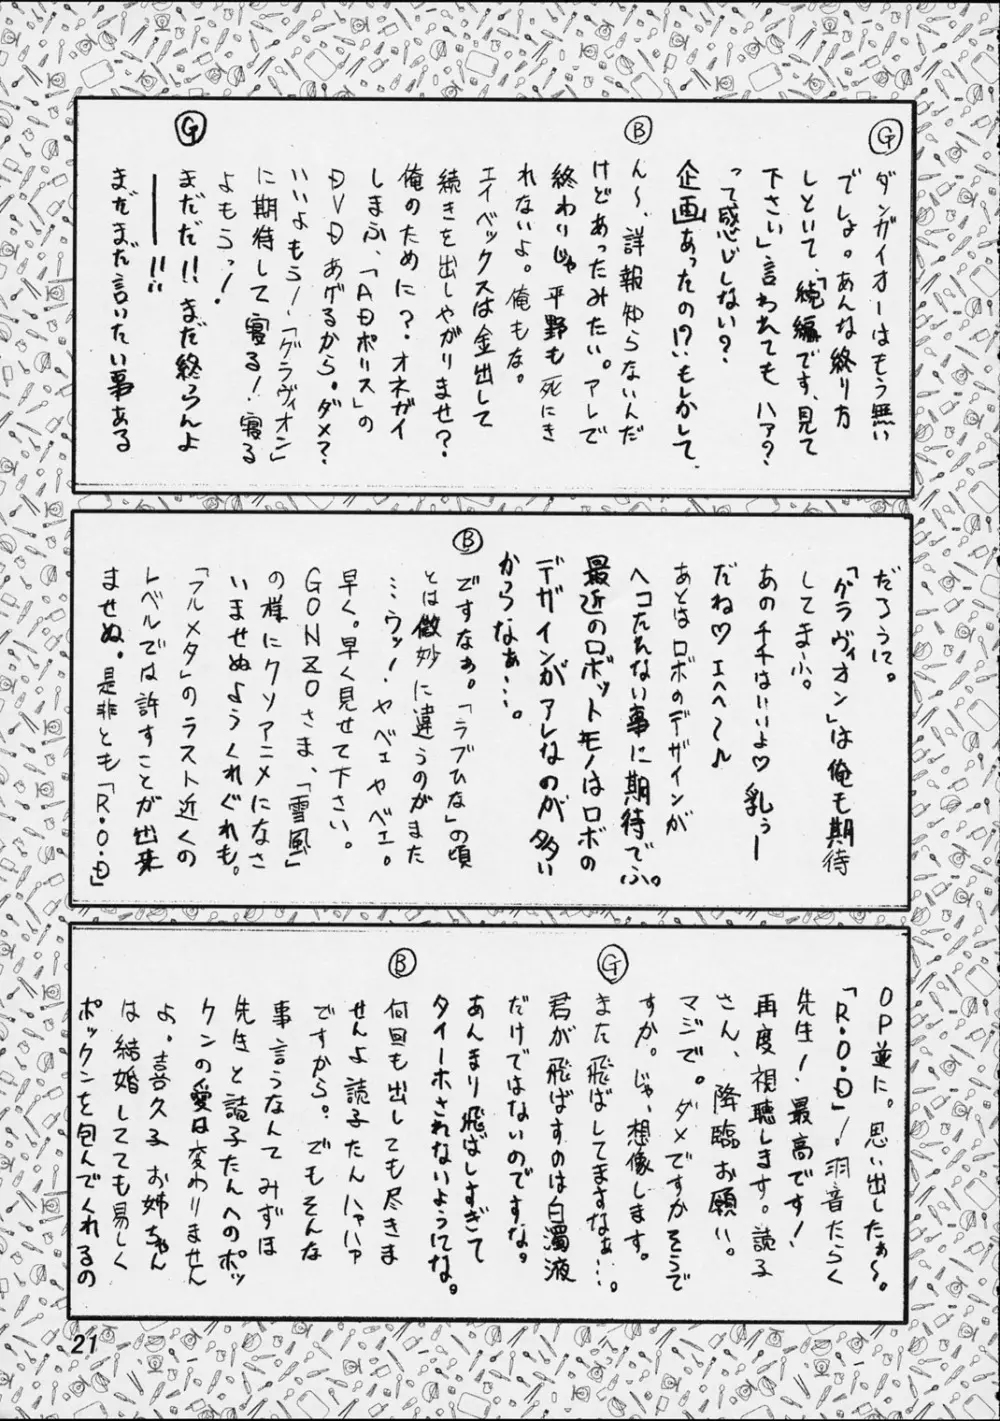 G
ダンガイオーはもう無い
でしょ。あんな終り方
しといて、「続編です、見て
下さい」言われても ハァ?
って感じしない?
企画あったの!?いもしかして、
B
ん〜、詳報知らないんだ
けどあったみたい。アレで
終わりじゃ平野も死にき
れないよ。俺もな。
エイベックスは金出して
続きを出しやがりませ?
俺のために?オネガイ
しまふ、「ADポリス」の
DVDあげるから。ダメ?
いいよもう!「グラヴィオン」
に期待して寝る!寝る
よもう!
G
まだだ!!まだ終らんよ
――――!!
まだまだ言いたい事ある
だろうに。
「グラヴィオン」は俺も期待
してまふ。
あの千千はいいよ♡乳ぅー
だね♡エヘへ〜♪
あとはロボのデザインが
ヘコたれない事に期待でふ。
最近のロボットモノはロボの
デザインがアレなのが多い
からなぁ…。
B
ですなぁ。「ラブひな」の頃
とは微妙に違うのがまた
…ウッ!ヤベェヤベェ。
早く。早く見せて下さい。
GONZOさま、「雪風」
の様にクソアニメになさ
いませぬようくれぐれも。
「フルメタ」のラスト近くの
レベルでは許すことが出来
ませぬ。是非とも「R・O・D」
OP並に。思い出したぁ〜。
「R・O・D」!羽音たらく
先生!最高です!
再度視聴します。読子
さん、降臨お願い。
マジで。ダメですかそうで
すか。じゃ、想像します。
G
また飛ばしてますなぁ…。
君が飛ばすのは白濁液
だけではないのですな。
あんまり飛ばしすぎて
タイーホされないようにな。
B
何回も出しても尽きま
せんよ読子たんハァハァ
ですから。でもそんな
事言うなんてみずほ
先生と読子たんへのポッ
クンの愛は変わりません
よ。喜久子お姉ちゃん
は結婚してても易しく
ポックンを包んでくれるの
21